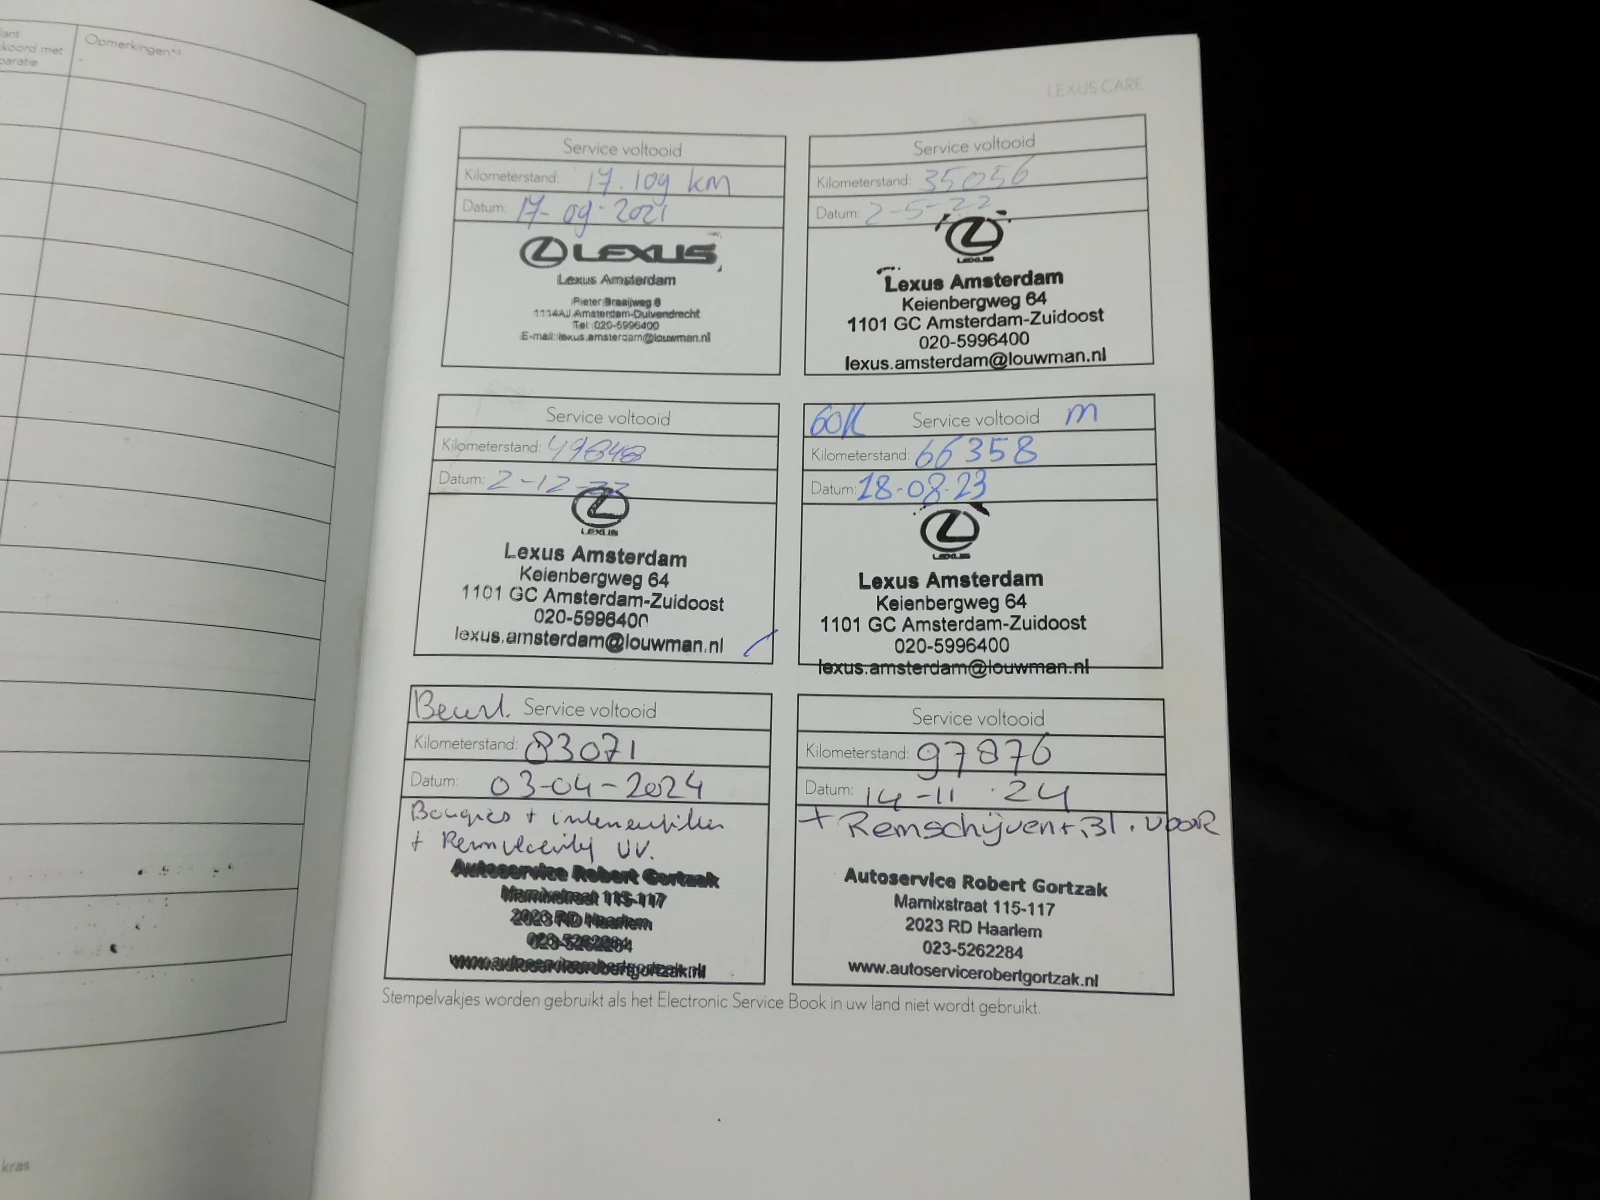 koord met
Opmerkingen*)
LEXUS CARE
Service voltooid
Kilometerstand: 17.109 km
Datum: 17-09-2021
LEXUS
Lexus Amsterdam
Pieter Braaijweg 6
1114AJ Amsterdam-Duivendrecht
Tel: 020-5996400
E-mail: lexus.amsterdam@louwman.nl
Service voltooid
Kilometerstand: 35056
Datum: 2-5-22
LEXUS
Lexus Amsterdam
Keienbergweg 64
1101 GC Amsterdam-Zuidoost
020-5996400
lexus.amsterdam@louwman.nl
Service voltooid
Kilometerstand: 49848
Datum: 2-12-22
LEXUS
Lexus Amsterdam
Keienbergweg 64
1101 GC Amsterdam-Zuidoost
020-5996400
lexus.amsterdam@louwman.nl
60K Service voltooid m
Kilometerstand: 66358
Datum: 18-08-23
LEXUS
Lexus Amsterdam
Keienbergweg 64
1101 GC Amsterdam-Zuidoost
020-5996400
lexus.amsterdam@louwman.nl
Beurt. Service voltooid
Kilometerstand: 83071
Datum: 03-04-2024
Bougies + interieurfilter
+ Remvloeistof VV.
Autoservice Robert Gortzak
Marnixstraat 115-117
2023 RD Haarlem
023-5262284
www.autoservicerobertgortzak.nl
Service voltooid
Kilometerstand: 97876
Datum: 14-11-24
+ Remschijven + Bl. VOOR
Autoservice Robert Gortzak
Marnixstraat 115-117
2023 RD Haarlem
023-5262284
www.autoservicerobertgortzak.nl
Stempelvakjes worden gebruikt als het Electronic Service Book in uw land niet wordt gebruikt.
kras